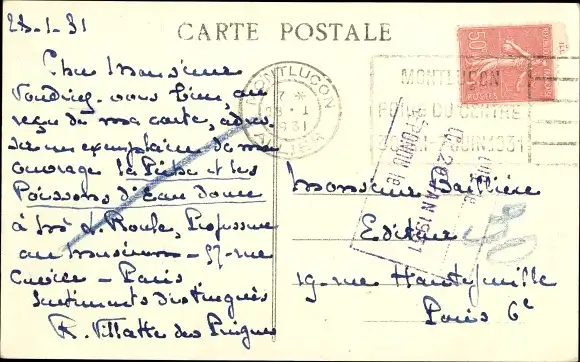 28-1-31
CARTE POSTALE
Cher Monsieur
Voudriez-vous bien, au
reçu de ma carte, adres-
ser un exemplaire de mon
ouvrage la Pêche et les
Poissons d'Eau douce
à Mr L. Roule, Professeur
au Muséum - 57-rue
Cuvier - Paris
Sentiments distingués
R. Villatte des Prugnes
MONTLUCON
ALLIER
1931
50c
POSTES
MONTLUÇON
FOIRE DU CENTRE
JUIN 1931
RÉPONDU le
JAN 1931
Monsieur Baillière
Editeur
19-rue Hautefeuille
Paris 6e